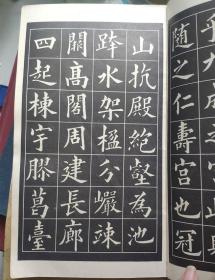 隨之仁壽宮也冠
山抗殿絶壑為池
跨水架楹分巖竦
闕高閣周建長廊
四起棟宇膠葛臺